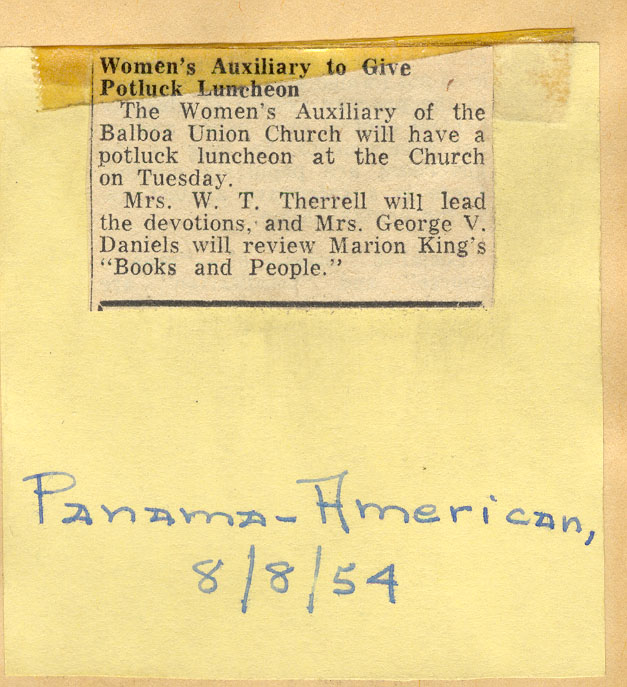 Women's Auxiliary to Give
Potluck Luncheon
The Women's Auxiliary of the
Balboa Union Church will have a
potluck luncheon at the Church
on Tuesday.
Mrs. W. T. Therrell will lead
the devotions, and Mrs. George V.
Daniels will review Marion King's
"Books and People."
Panama-American,
8/8/54